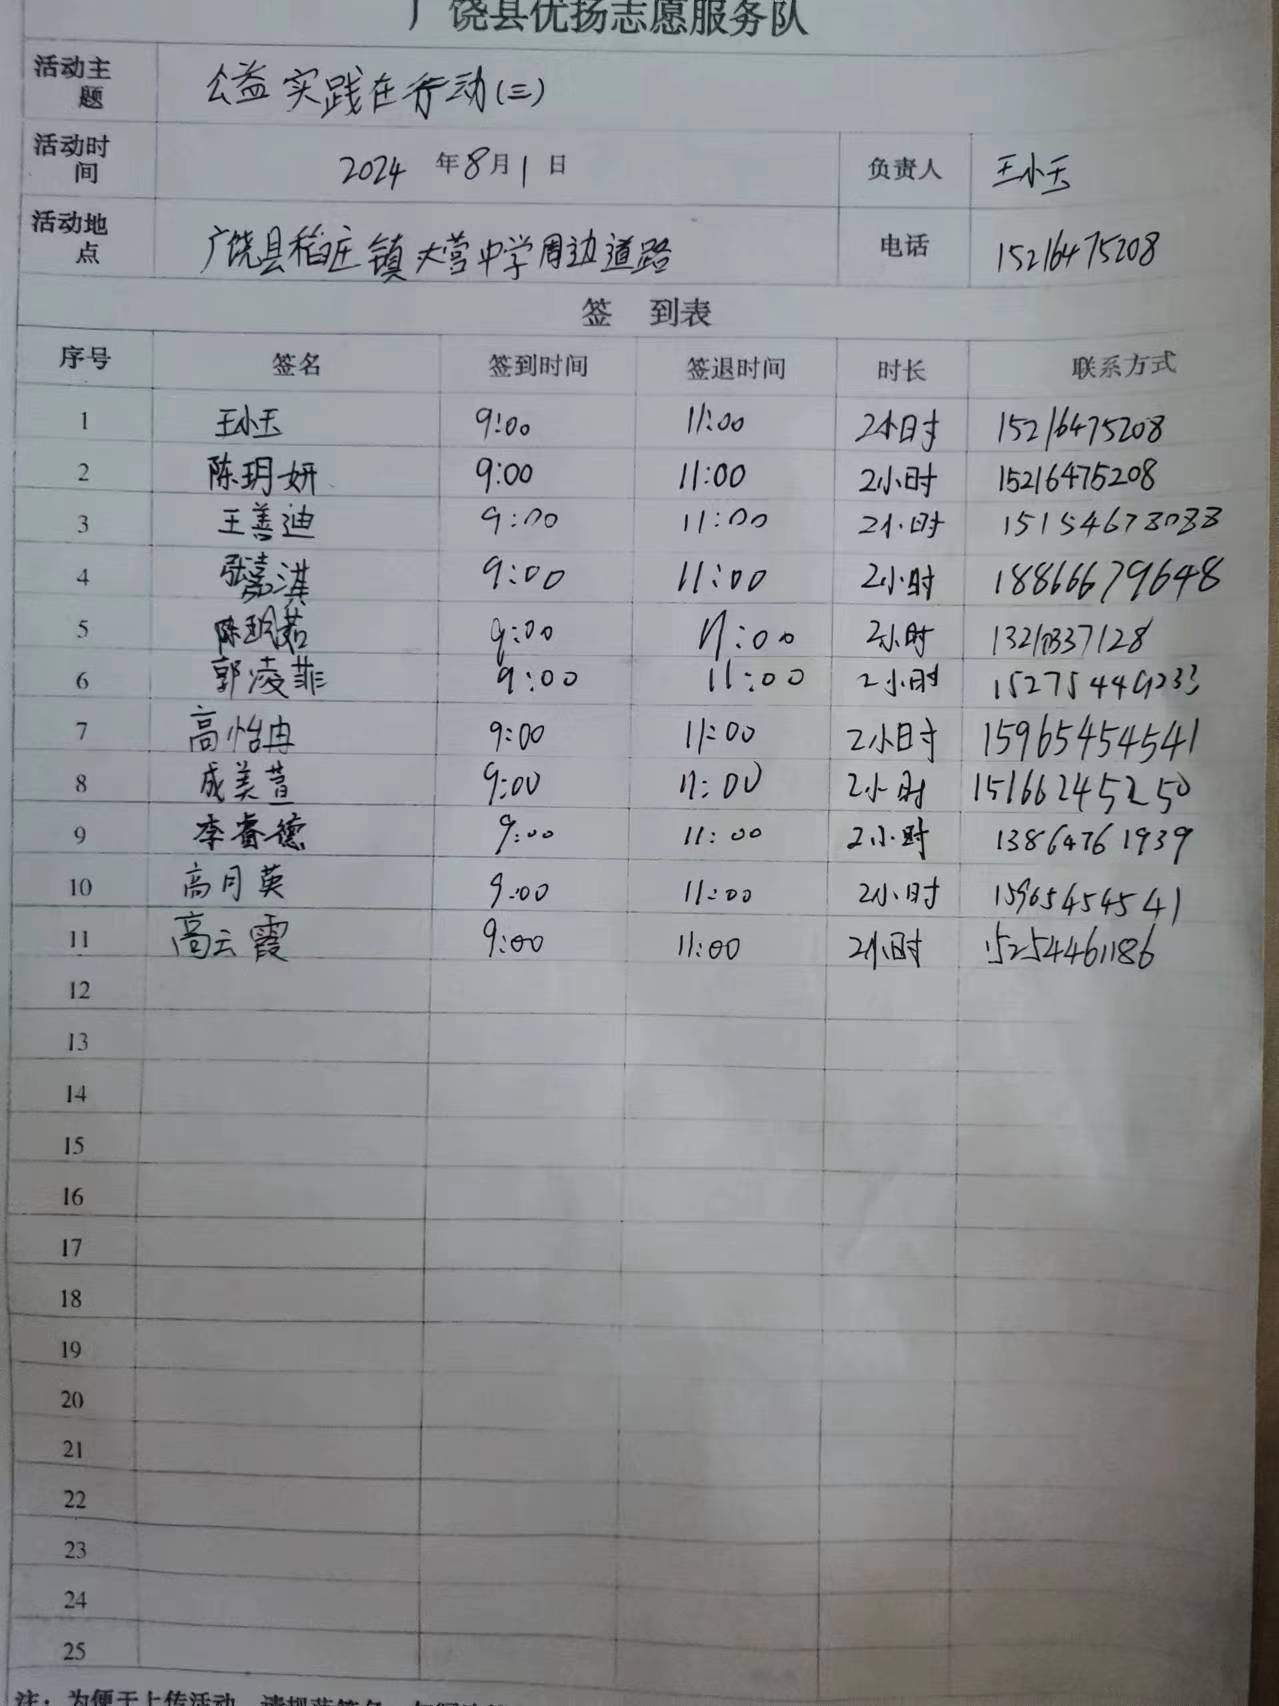 广饶县优扬志愿服务队
活动主题 公益实践在行动(三)
活动时间 2024 年8月1日 负责人 王小玉
活动地点 广饶县稻庄镇大营中学周边道路 电话 15216475208
签 到表
序号 签名 签到时间 签退时间 时长 联系方式
1 王小玉 9:00 11:00 2小时 15216475208
2 陈玥妍 9:00 11:00 2小时 15216475208
3 王善迪 9:00 11:00 2小时 15154673033
4 张嘉淇 9:00 11:00 2小时 18866679648
5 陈玥茹 9:00 11:00 2小时
6 郭凌菲 9:00 11:00 2小时
7 高怡冉 9:00 11:00 2小时 15965454541
8 成美萱 9:00 11:00 2小时 15166245250
9 李睿德 9:00 11:00 2小时 13864761939
10 高月英 9:00 11:00 2小时 15965454541
11 高云霞 9:00 11:00 2小时 15254461186
12
13
14
15
16
17
18
19
20
21
22
23
24
25
注：为便于上传活动